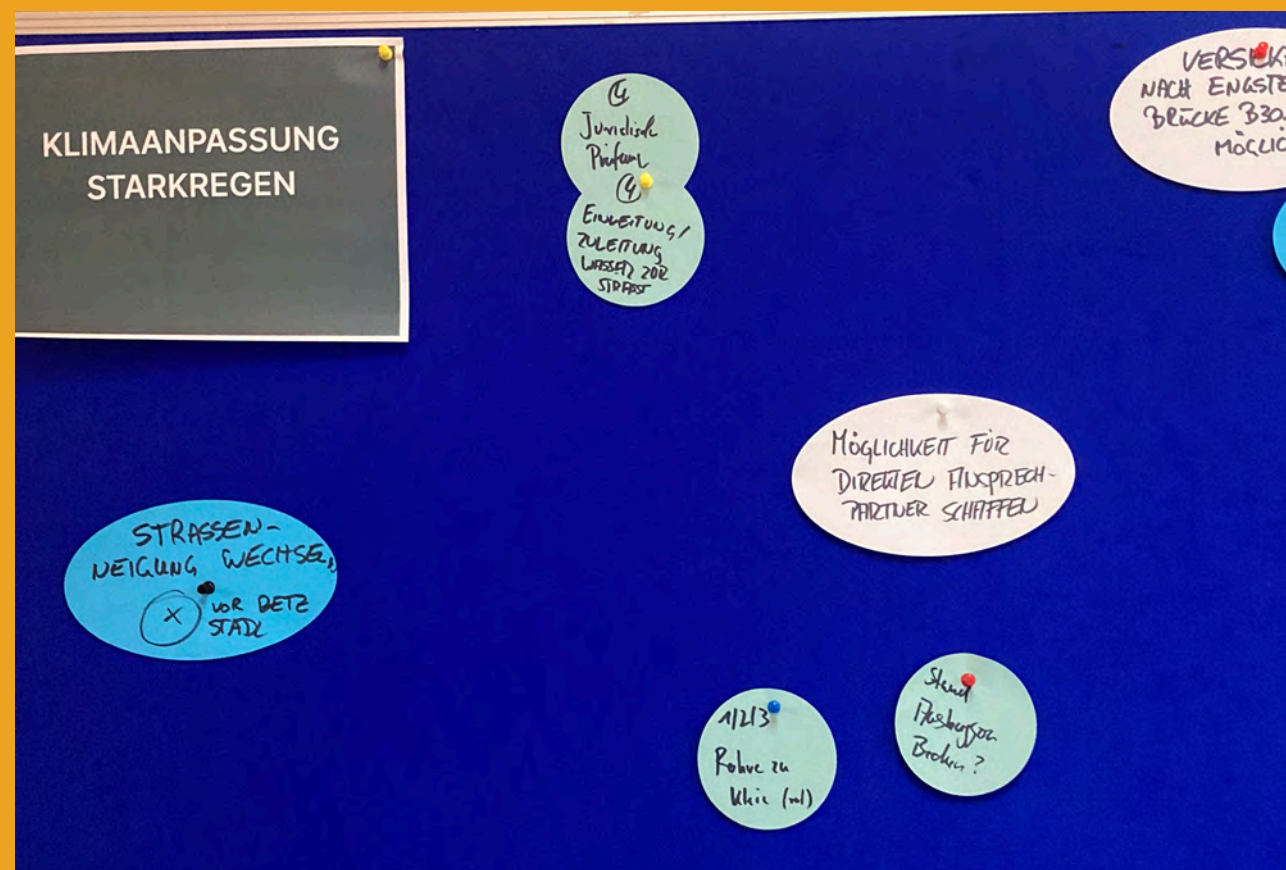 KLIMAANPASSUNG
STARKREGEN
4
Juridische
Prüfung
4
EINLEITUNG/
ZULEITUNG
WASSER ZUR
VERSICKE
NACH ENGSTE
BRÜCKE B30
MÖGLIC
MÖGLICHKEIT FÜR
DIREKTEN ANSPRECH-
PARTNER SCHAFFEN
STRASSEN-
NEIGUNG WECHSELN
X VOR BETZ
STADL
1/2/3
Rohre zu
klein (rot)
Stand
Becken?